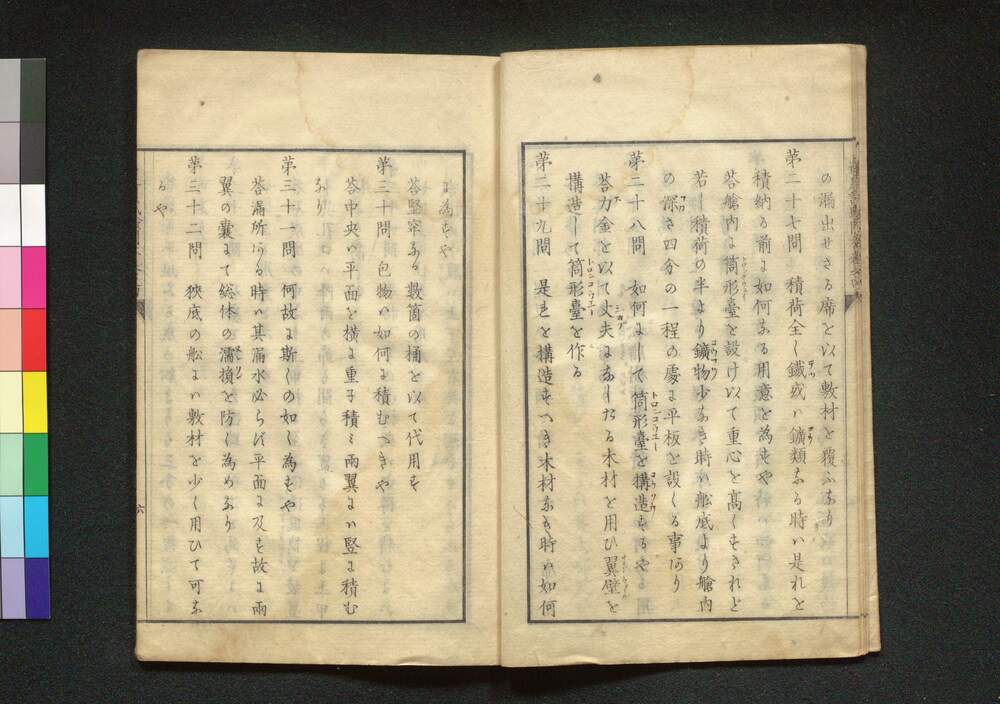 の漏出せさる席を以て敷材を覆ふなり
第二十七問　積荷全く鐵或ハ鑛類なる時ハ是れを
積納る前に如何なる用意を為すや
荅艙内に筒形臺を設け以て重心を高くすされど
若し積荷の半より鑛物少なき時ハ舩底より艙内
の深さ四分の一程の處に平板を設くる事あり
第二十八問　如何にして筒形臺を構造するや
荅力金を以て丈夫になしたる木材を用ひ翼壁を
構造して筒形臺を作る
第二十九問　是れを構造すべき木材なき時ハ如何
に為すや
荅堅牢なる数箇の桶を以て代用す
第三十問　包物ハ如何に積むべきや
荅中央ハ平面を横に重子積ミ兩翼にハ竪に積む
なり
第三十一問　何故に斯くの如く為すや
荅漏所ある時ハ其漏水必らず平面に及す故に兩
翼の嚢にて総体の濡損を防く為めなり
第三十二問　狹底の舩にハ敷材を少く用ひて可な
るや
六